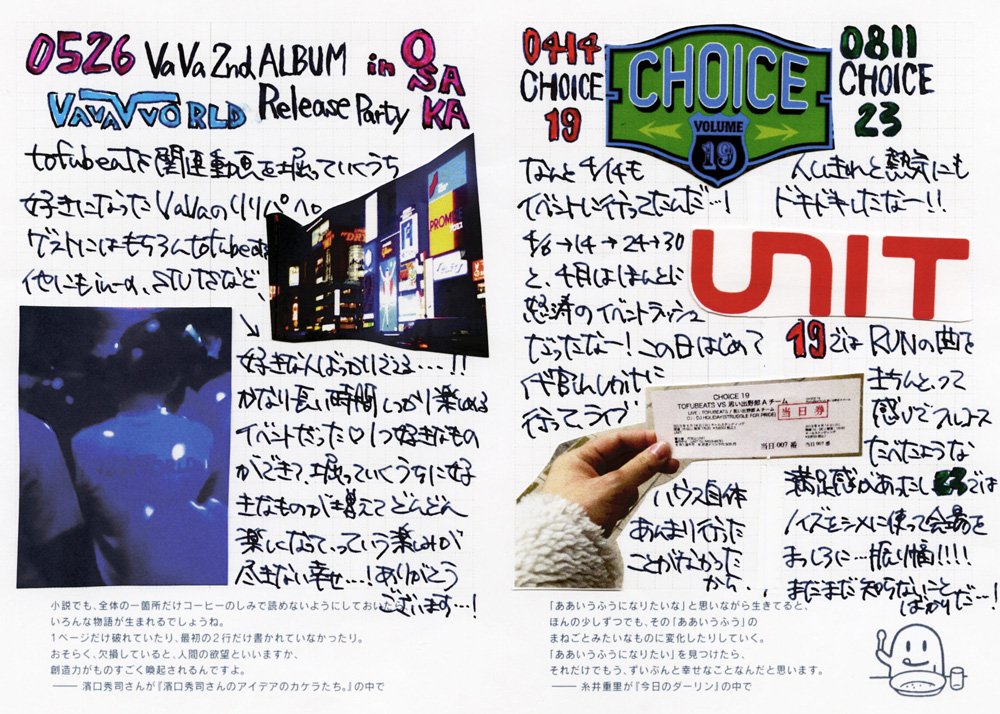 0526 VaVa 2nd ALBUM in OSAKA
VAVAVVORLD Release Party
tofubeatsを関連動画を掘っていくうち
好きになったVaVaのリリパへ。
ゲストにはもちろんtofubeats
他にもin-d、STUTSなど、
PROMISE
好きなんばっかりでてる…!!
かなり長い時間しっかり楽しめる
イベントだった♡1つ好きなもの
ができて、掘っていくうちに好
きなものが増えてどんどん
楽しくなって、っていう楽しみが
尽きない幸せ…!ありがとう
ございます…!
小説でも、全体の一箇所だけコーヒーのしみで読めないようにしておいたら
いろんな物語が生まれるでしょうね。
1ページだけ破れていたり、最初の2行だけ書かれていなかったり。
おそらく、欠損していると、人間の欲望といいますか、
創造力がものすごく喚起されるんですよ。
―― 濱口秀司さんが『濱口秀司さんのアイデアのカケラたち。』の中で
0414
CHOICE
19
CHOICE
VOLUME
19
0811
CHOICE
23
なんと4/14も
イベントに行ってたんだ…!
4/6→14→24→30
と、4月はほんとに
怒涛のイベントラッシュ
だったなー!この日はじめて
代官山UNITに
行って、ライブ
ハウス自体
あんまり行った
ことがなかった
から、
人しきれと熱気にも
ドキドキしたなー!!
UNIT
19では RUNの曲を
きちんと、って
感じでフルコース
たべたような
満足感があったし23では
ノイズをシメに使って会場を
まっしろに…振り幅!!!!
まだまだ知らないこと
ばかりだ…!
CHOICE 19
TOFUBEATS VS 思い出野郎Aチーム
LIVE : TOFUBEATS / 思い出野郎Aチーム
当日券
当日 007 番
当日 007 番
「ああいうふうになりたいな」と思いながら生きてると、
ほんの少しずつでも、その「ああいうふう」の
まねごとみたいなものに変化したりしていく。
「ああいうふうになりたい」を見つけたら、
それだけでもう、ずいぶんと幸せなことなんだと思います。
―― 糸井重里が『今日のダーリン』の中で